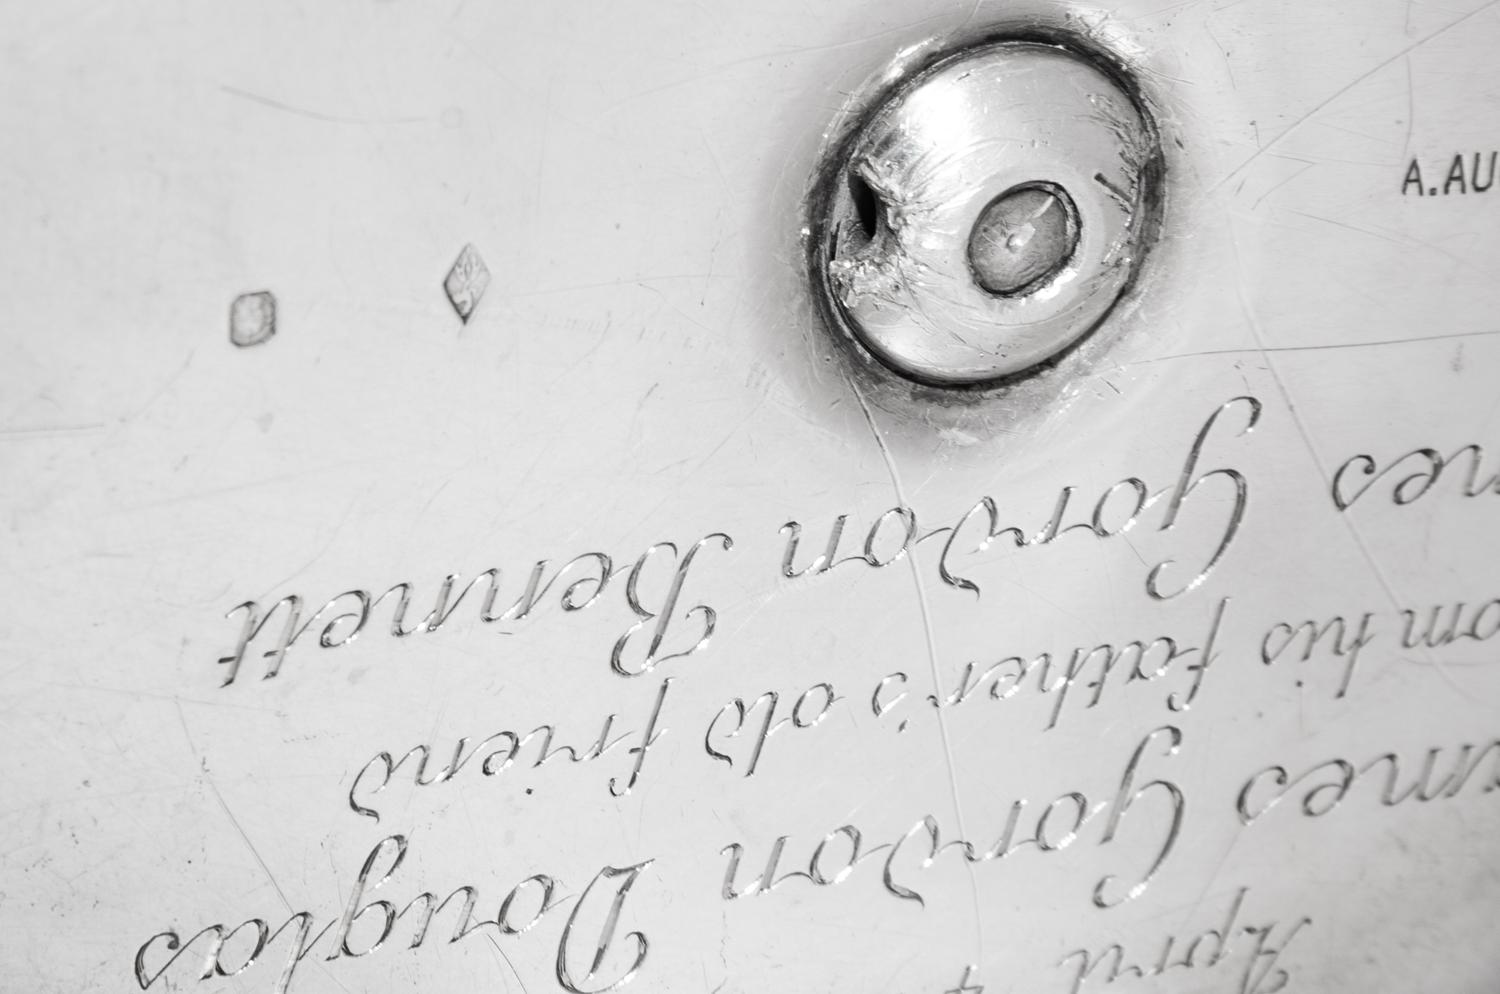 April 4
ames Gordon Douglas
om his father's old friend
mes Gordon Bennett
A.AU